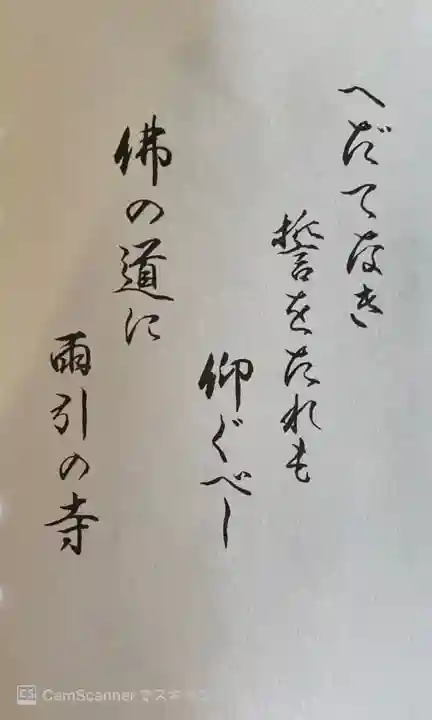 へだてなき
誓をたれも
仰ぐべし
佛の道に
雨引の寺
CS CamScanner でスキャン